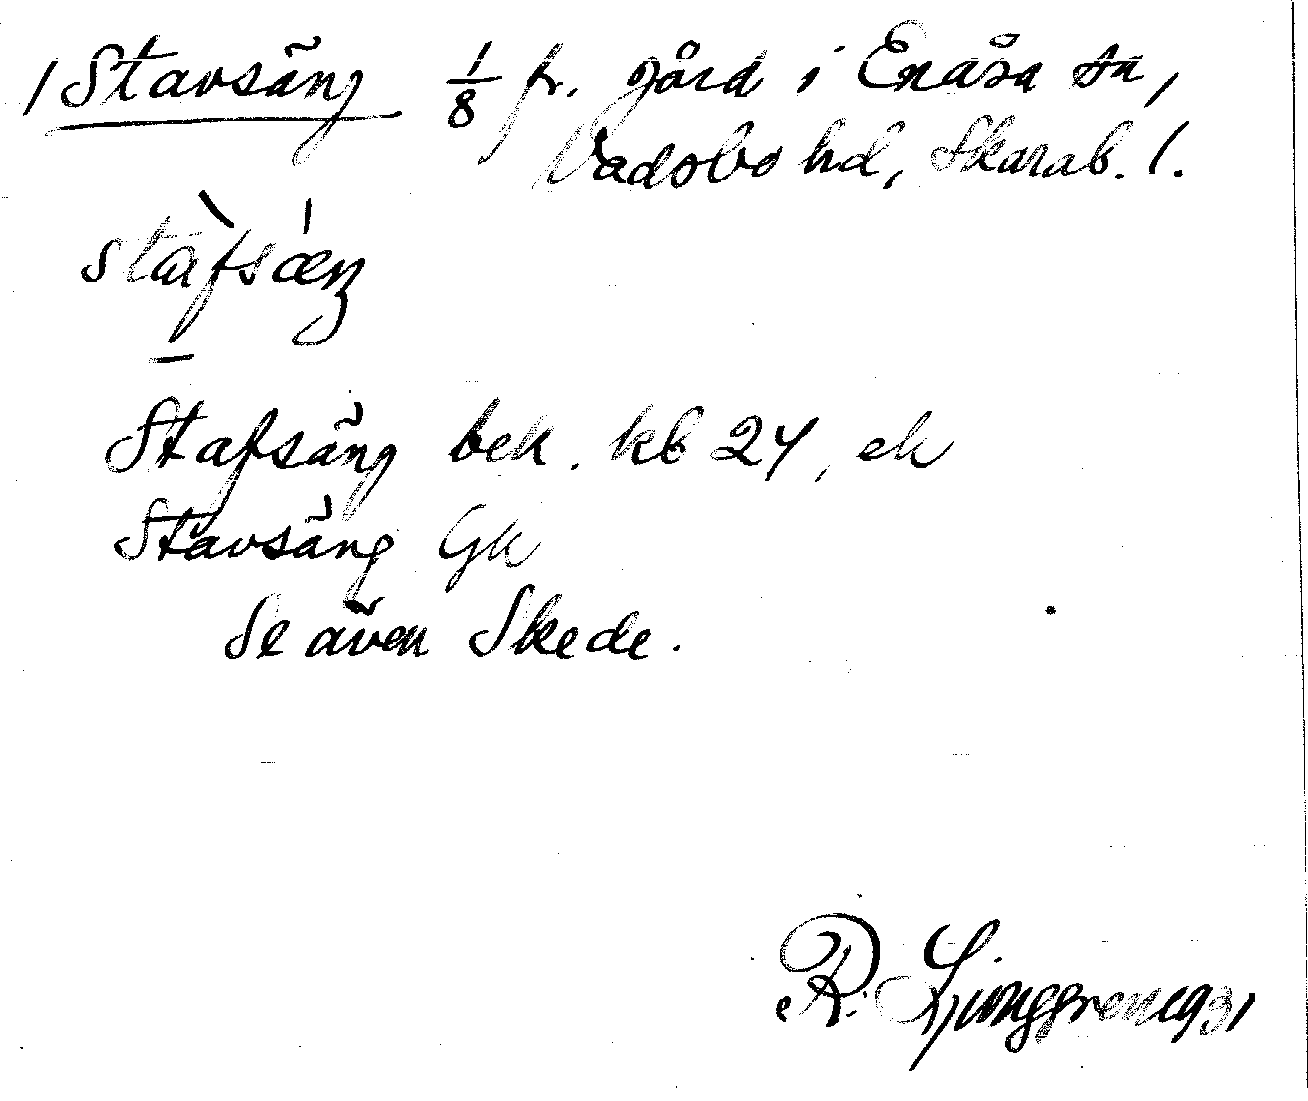 1 Stavsäng 1/8 fr. gård i Enåsa sn,
Vadsbo hd, Skarab. l.
stàfsǽŋ
Stafsäng bek. kb 24, ek
Stavsäng Gk
Se även Skede.
R. Ljunggren 1931